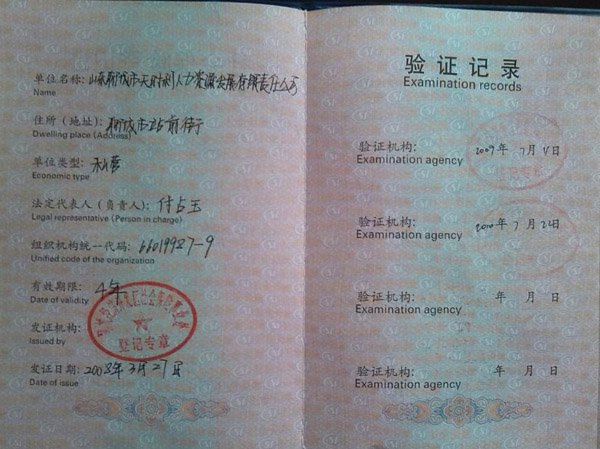 单位名称: 山东聊城市天时利人力资源发展有限责任公司
Name
住所（地址）: 聊城市站前街
Dwelling place (Address)
单位类型: 私营
Economic type
法定代表人（负责人）: 付占玉
Legal representative (Person in charge)
组织机构统一代码: 66019927-9
Unified code of the organization
有效期限: 4年
Date of validity
发证机构:
Issued by
登记专章
发证日期: 2008年3月27日
Date of issue
验证记录
Examination records
验证机构: 2009年7月 日
Examination agency
验证机构: 2010年7月2日
Examination agency
验证机构: 年 月 日
Examination agency
验证机构: 年 月 日
Examination agency